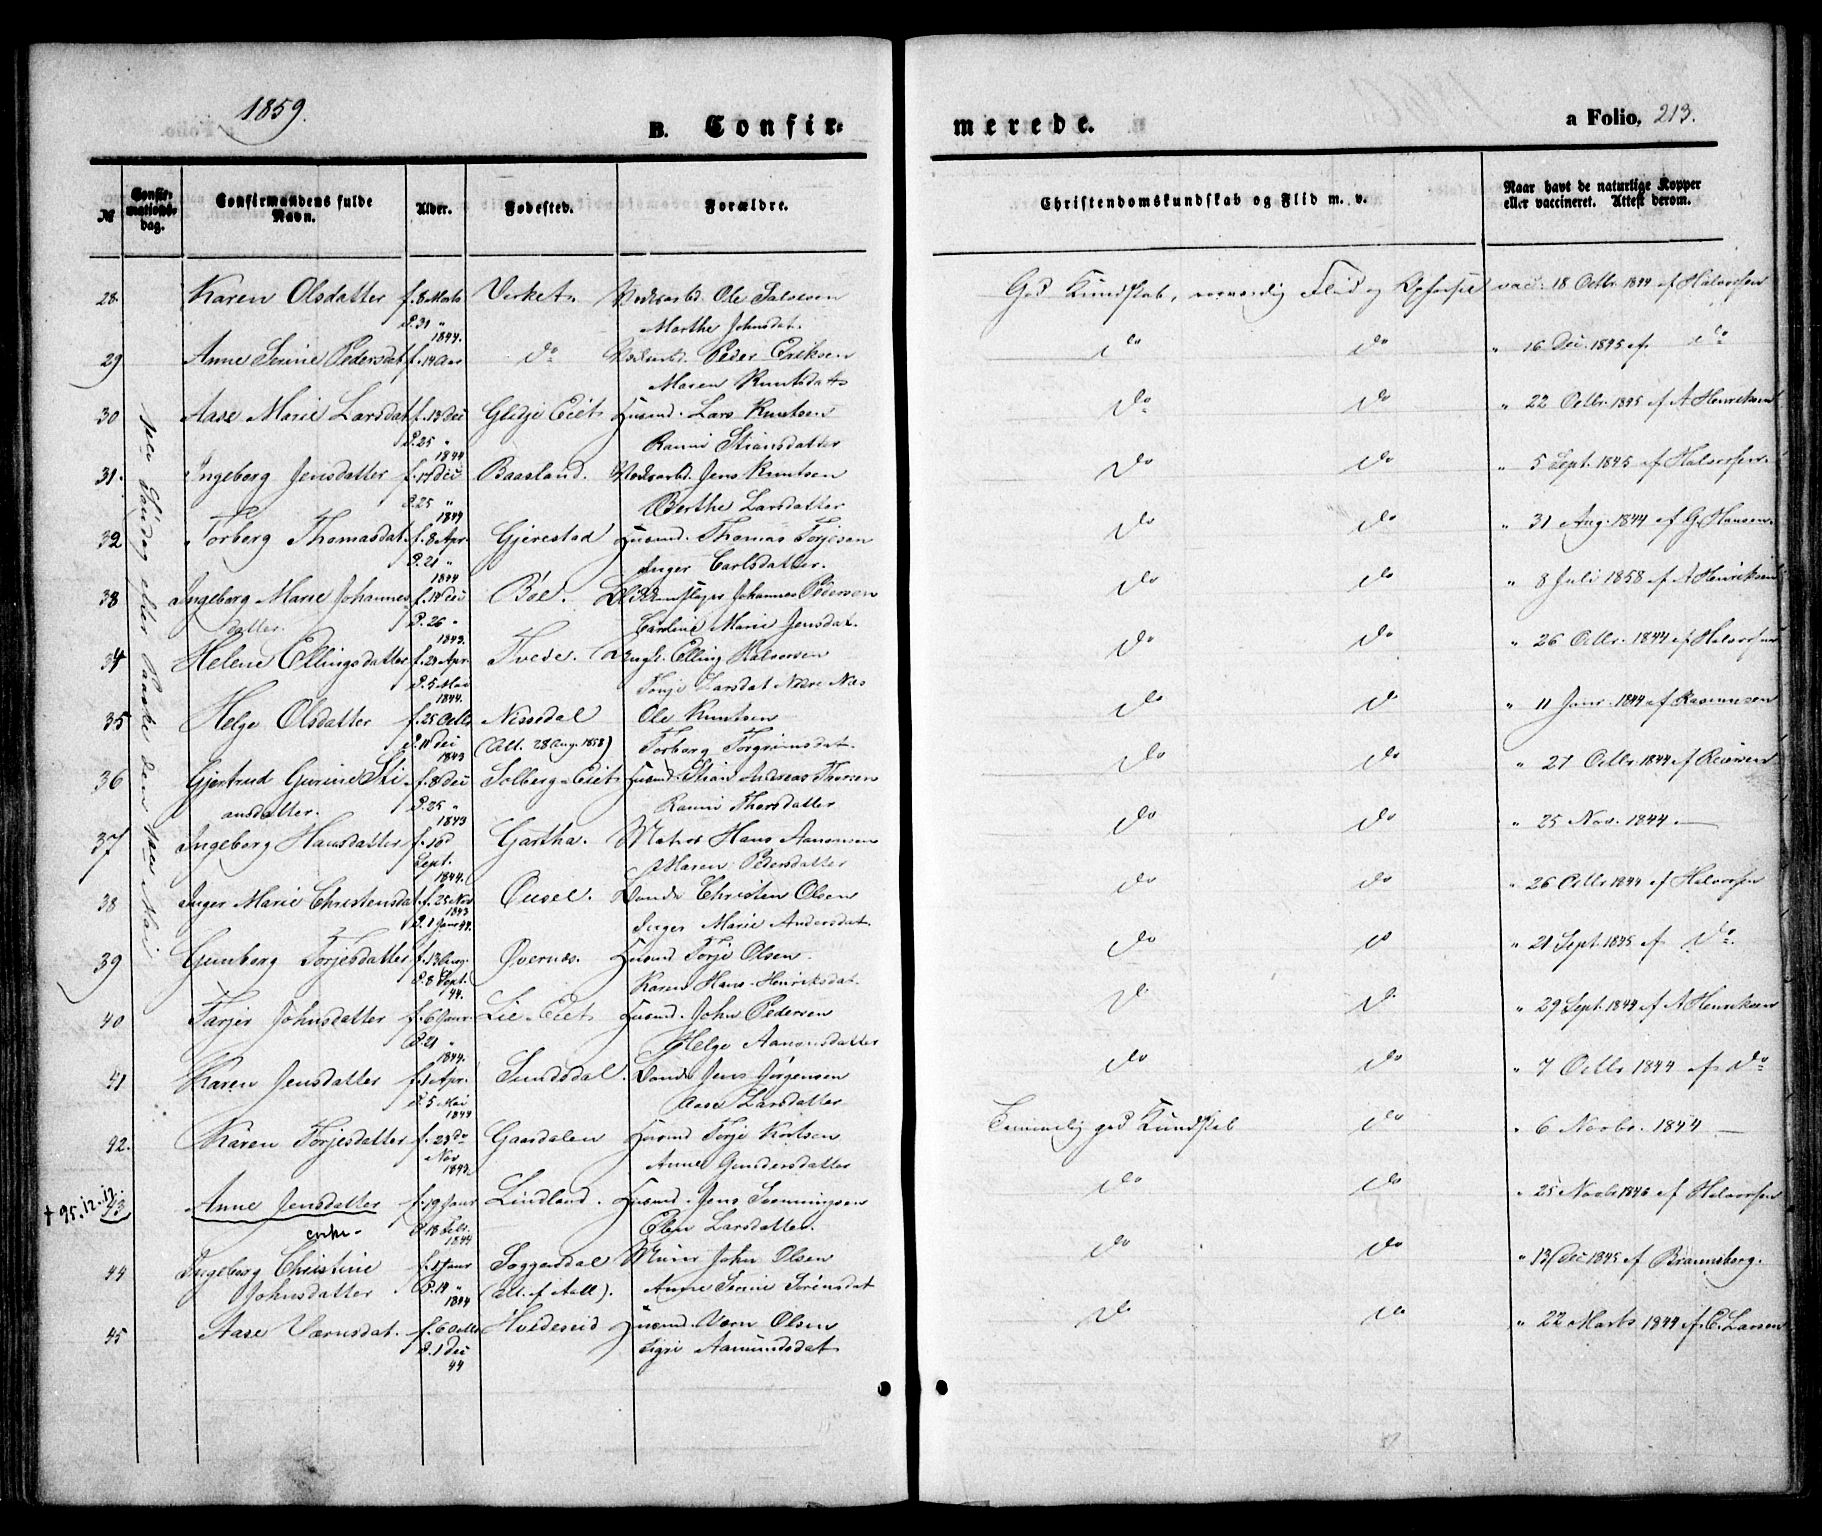 1859.
B. Confir-
merede.
a Folio, 213.
№
Confir-
mations-
dag.
Confirmandens fulde
Navn.
Alder.
Fødested.
Forældre.
Christendomskundskab og Flid m. v.
Naar havt de naturlige Kopper
eller vaccineret. Attest derom.
Søndag efter Paaske den Mai
28. Karen Olsdatter f. 8 Marts Virket Ole Salvesen God Kundskab, Flid og vac. 18 Octbr. 1844 af Halvorsen
D. 31 " 1844. Marthe Johnsdat.
29 Anne Serine Pedersdat f. 14 Do Peder Eriksen Do Do " 16 Dec. 1845 af Do
Maren Knutsdat
30 Aase Marie Larsdat f. 13 Dec Glidje Eiet Husmd. Lars Knutsen Do Do " 22 Octbr. 1845 af A Henriksen
D. 25 " 1844 Ranni Stiansdatter
31. Ingeborg Jensdatter f. 17 Dec Baasland. Jens Knutsen Do Do " 5 Sept. 1845 af Halvorsen
D. 25 " 1844 Berthe Larsdatter
32 Torberg Thomasdat f. 8 Apr. Gjerestad Husmd. Thomas Torjesen Do Do " 31 Aug. 1844 af G. Hansen.
D. 21 " 1844 Inger Carlsdatter.
33 Ingeborg Marie Johannes- f. 14 Dec Böe. Johannes Pedersen Do Do " 8 Juli 1858 af A Henriksen
datter. D. 26 " 1843. Caroline Marie Jensdat.
34 Helene Ellingsdatter f. 23 Apr. Tvede. Ungk. Elling Halvorsen Do Do " 26 Octbr. 1844 af Halvorsen
D. 5 Mai 1844. Torje Larsdat Nedre Næs
35 Helge Olsdatter f. 25 Octbr Nissedal Ole Knutsen Do Do " 11 Janr. 1844 af Rasmussen
D. 11 Dec 1843 (Att. 28 Aug. 1858) Torborg Torgrimsdat.
36 Gjertrud Gurine Sti- f. 8 Dec Solberg-Eiet Husmd. Stian Andreas Thorsen Do Do " 27 Octbr. 1844 af
ansdatter. D. 25 " 1843 Ranni Thorsdatter
37 Ingeborg Hansdatter f. 10 Gartha. Matros Hans Aanonsen Do Do " 25 Nov. 1844.
Sept. 1844. Maren Pedersdatter
38 Inger Marie Christensdat f. 25 Nov 1843 Øusel. Bonde Christen Olsen Do Do " 26 Octbr 1844 af Halvorsen
D. 1 Janr 44. Inger Marie Andersdat.
39 Gunberg Torjesdatter f. 13 Aug. Øvernæs. Husmd Torje Olsen Do Do " 21 Sept. 1845 af Do
D. 8 Sept. 44. Karen Hans-Henriksdat.
40 Tarjer Johnsdatter f. 6 Janr. Lie-Eiet Husmd. John Pedersen Do Do " 29 Sept. 1844 af A Henriksen
D. 21 " 1844. Helge Aanonsdatter
41 Karen Jensdatter f. 1 Apr. Sundsdal. Bonde Jens Jörgensen Do Do " 7 Octbr 1844 af Do
D. 5 Mai 1844 Aase Larsdatter
42. Karen Torjesdatter f. 23 Gaasdalen Husmd Torje Temmelig god Kundskab Do " 6 Novbr. 1844
Nov 1843 Anne Gundersdatter
† 95.12.12. 43 Anne Jensdatter f. 19 Janr Lindland. Husmd. Jens Svenningsen Do Do " 25 Novbr 1846 af Halvorsen
enke. D. 18 Febr. 1844 Elen Larsdatter.
44 Ingeborg Christine f. 1 Janr Soggasdal Murer John Olsen Do Do " 13/ Dec 1845 af Brannsborg.
Johnsdatter D. 14 " 1844 (Att. af Aall). Anne Serine Sörensdat
45 Aase Værnsdat. f. 6 Octbr Hvideseid Husmd. Værn Olsen Do Do " 22 Marts 1844 af C. Larsen
D. 1 Dec 44 Sigri Aamundsdat